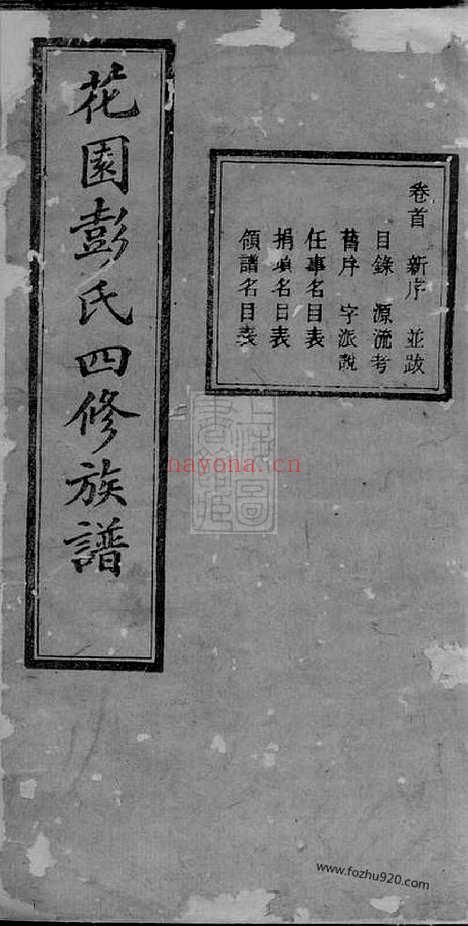 花園彭氏四修族譜
卷首 新序 並跋
目錄 源流考
舊序 字派說
任事名目表
捐項名目表
領譜名目表
hayona.cn
www.fozhu920.com